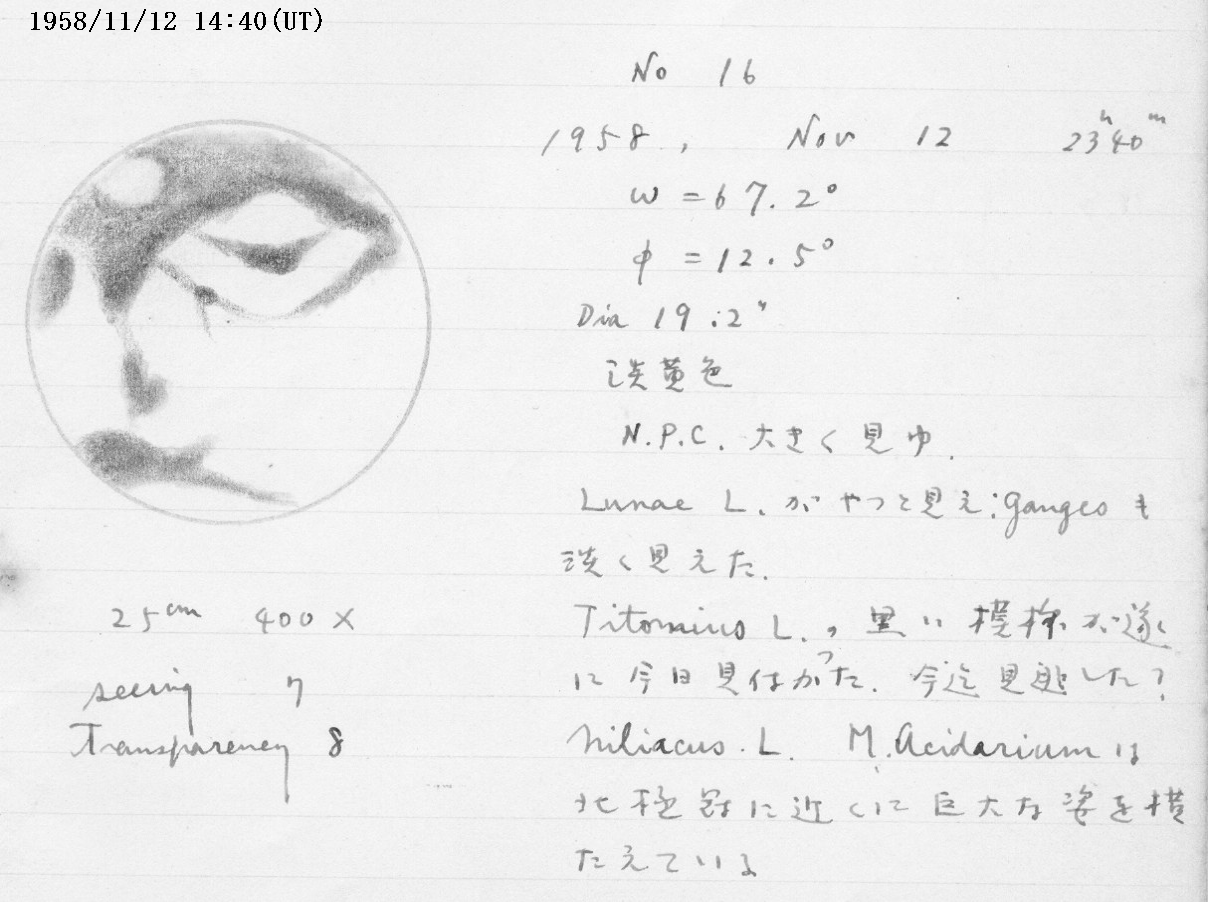 1958/11/12 14:40(UT)
No 16
1958, Nov 12 23h40m
ω = 67.2°
φ = 12.5°
Dia 19.2"
淡黄色
N.P.C. 大きく見ゆ.
Lunae L. がやっと見え; Ganges も
淡く見えた.
25cm 400×
Titonius L., 黒い模様が遂
に今日見付かった. 今迄見逃した?
seeing 7
Transparency 8
Niliacus. L. M. Acidarium は
北極冠に近くに巨大な姿を横
たえている